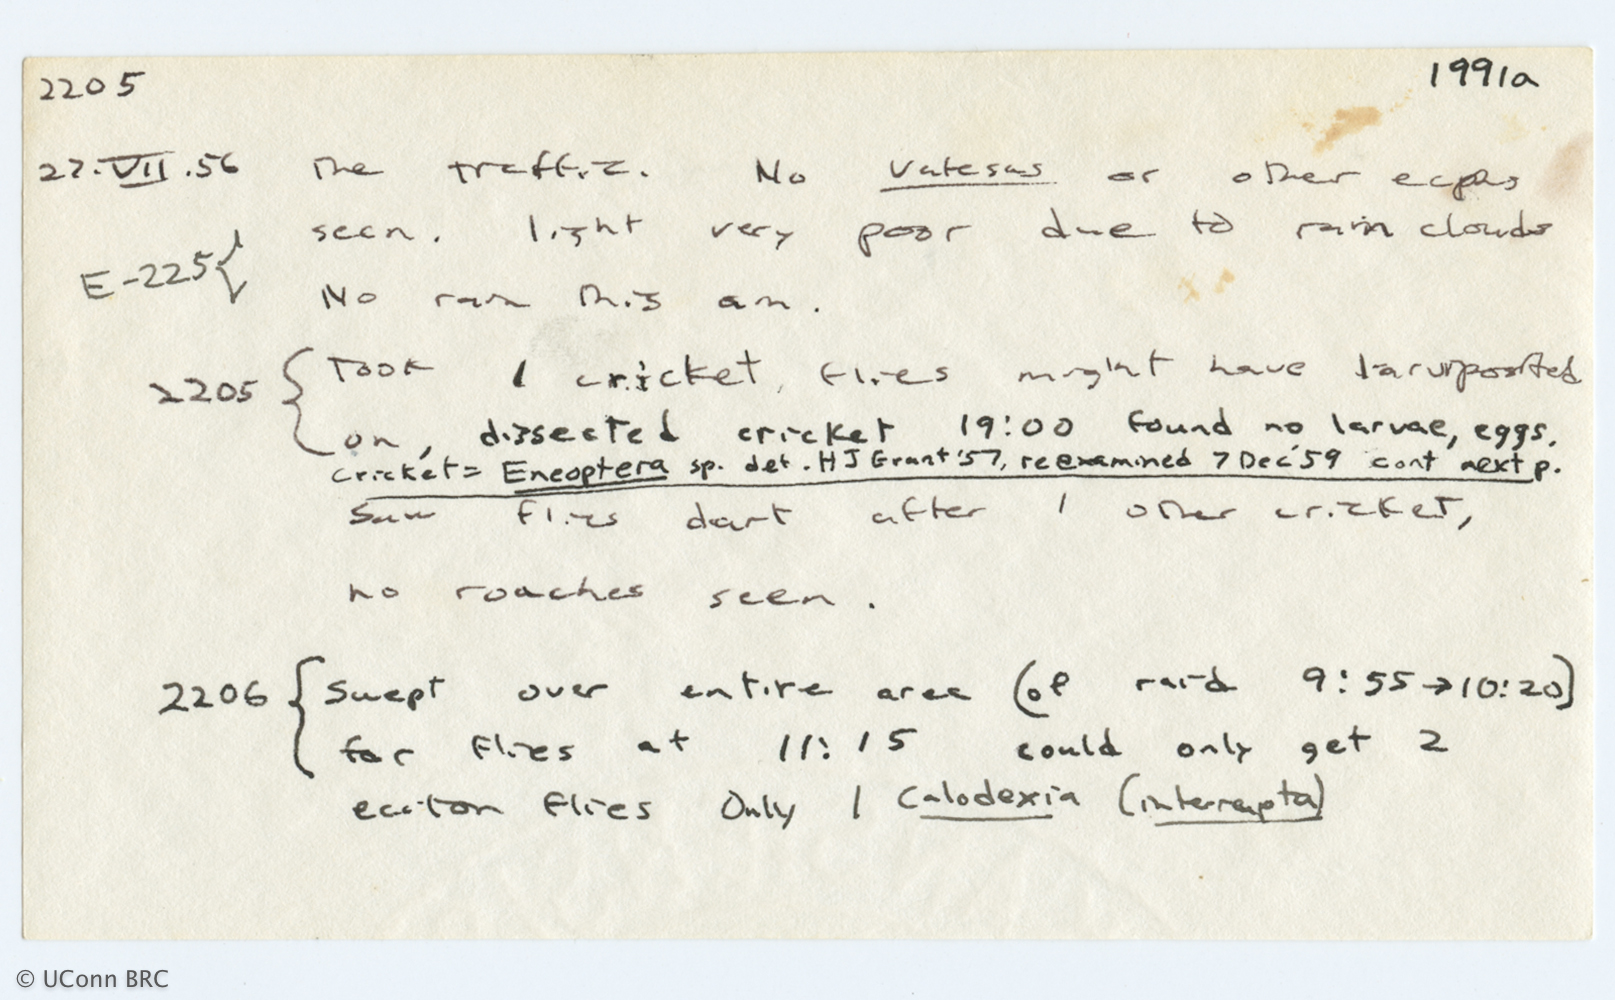 2205 1991a
27.VII.56 The traffic. No Vatesus or other ecphs
seen. light very poor due to rain clouds
E-225{ No rain this am.
2205 { Took 1 cricket, flies might have larviposited
on, dissected cricket 19:00 found no larvae, eggs.
cricket= Eneoptera sp. det. HJ Grant '57, reexamined 7 Dec '59 cont next p.
Saw flies dart after 1 other cricket,
no roaches seen.
2206 { Swept over entire area (of raid 9:55→10:20)
for flies at 11:15 could only get 2
eciton flies Only 1 Calodexia (interrupta)
© UConn BRC